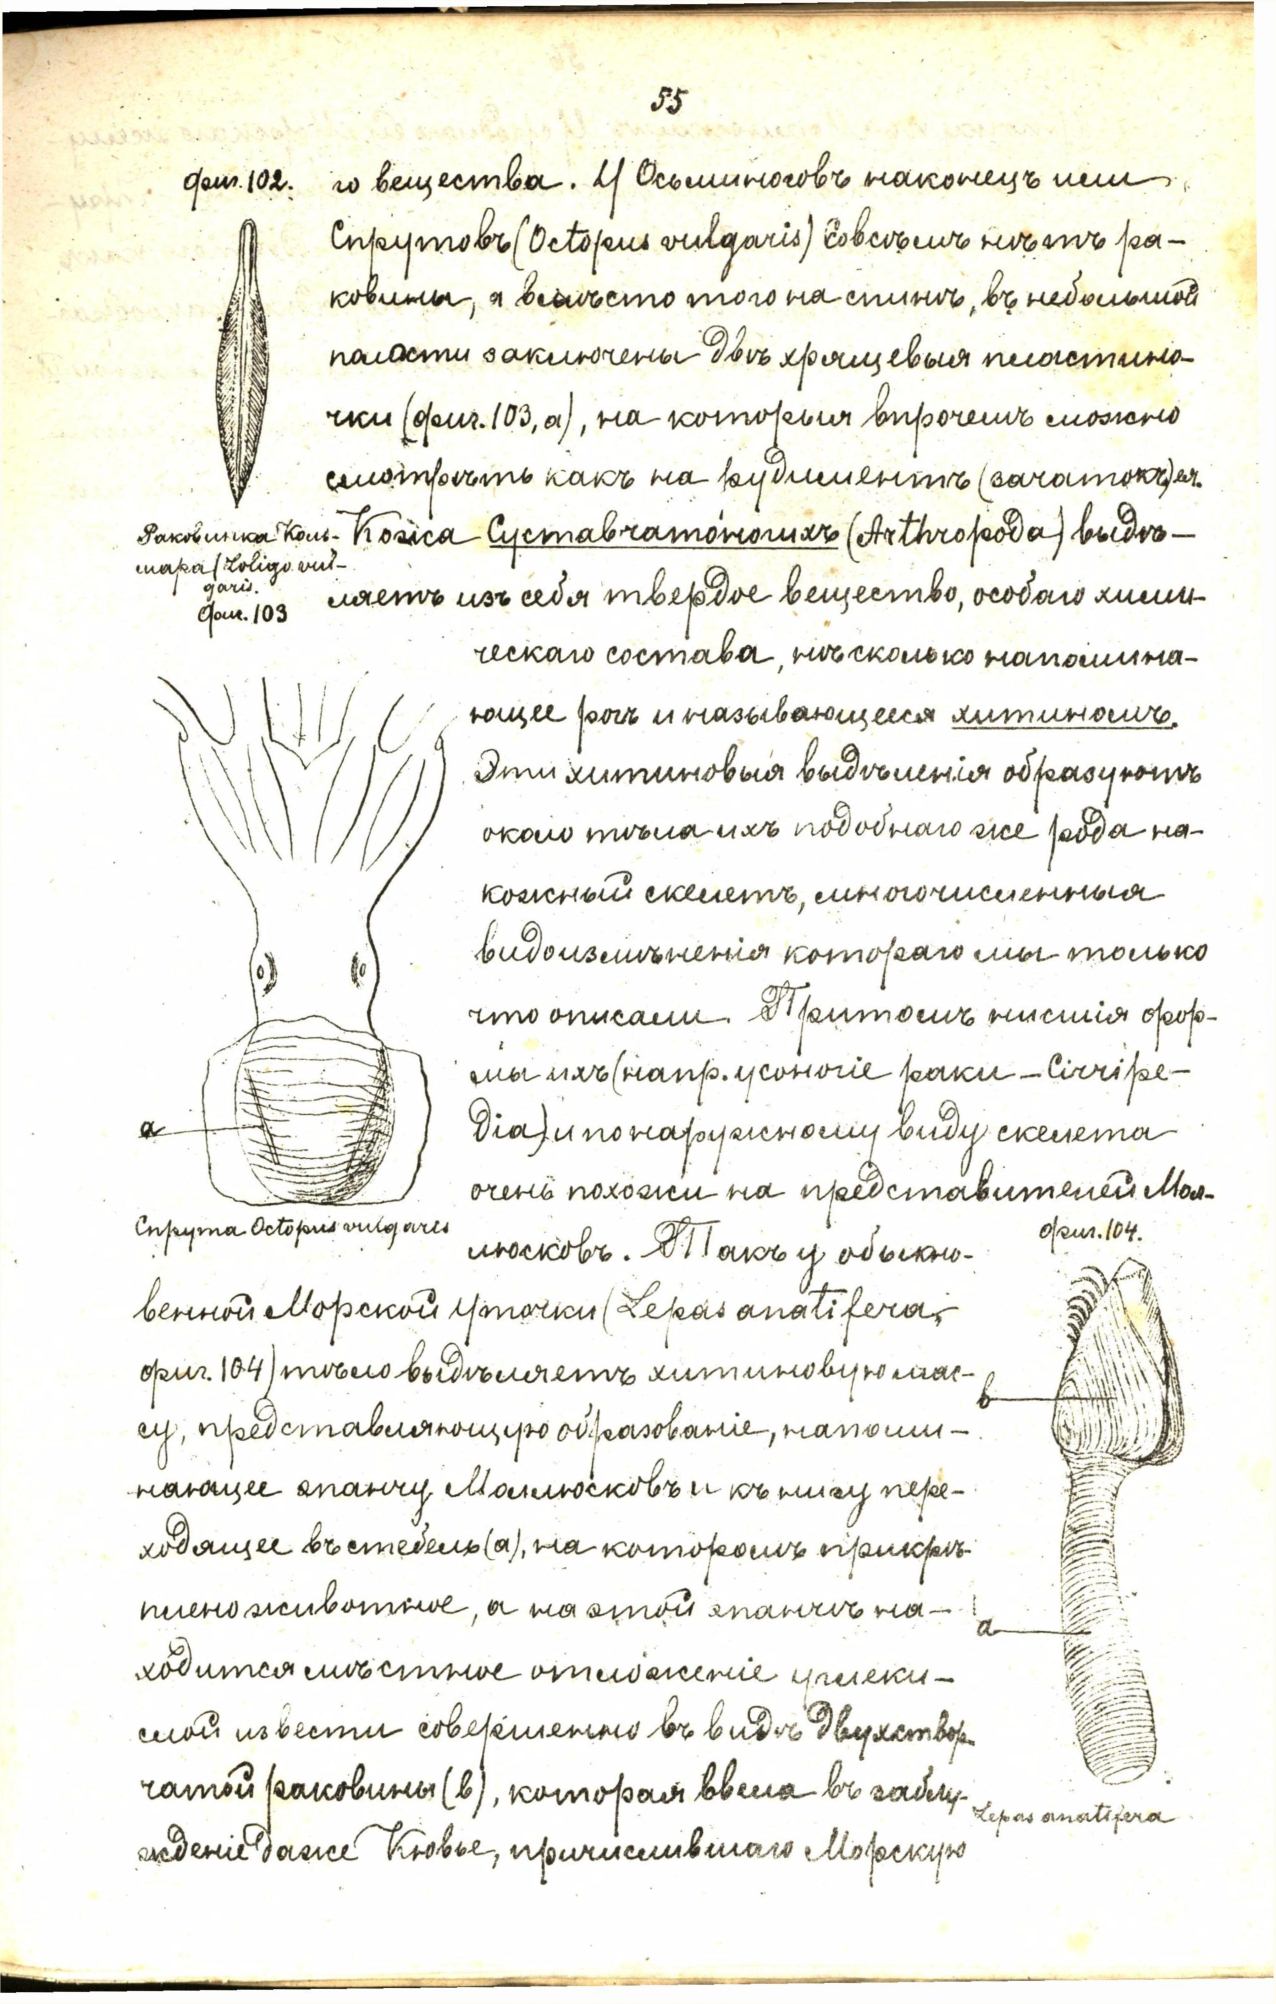 55
фиг. 102.
го вещества. У Осьминоговъ наконецъ или
Спрутовъ (Octopus vulgaris) совсѣмъ нѣтъ ра-
ковины, а вмѣсто того на спинѣ, въ небольшой
полости заключены двѣ хрящевыя пластино-
чки (фиг. 103, а), на которыя впрочемъ можно
смотрѣть какъ на рудиментъ (зачатокъ) ея.
Раковинка Коль-
мара (Loligo vul-
garis.
Фиг. 103
Кожа Суставчатоногихъ (Arthropoda) выдѣ-
ляетъ изъ себя твердое вещество, особаго хими-
ческаго состава, нѣсколько напомина-
ющее рогъ и называющееся хитиномъ.
Эти хитиновыя выдѣленія образуютъ
около тѣла ихъ подобнаго же рода на-
кожный скелетъ, многочисленныя
видоизмѣненія котораго мы только
что описали. Притомъ низшія фор-
мы ихъ (напр. усоногіе раки – Cirripe-
dia) и по наружному виду скелета
очень похожи на представителей Мол-
люсковъ. Такъ у обыкно-
а
Спрута Octopus vulgares
фиг. 104.
венной Морской Уточки (Lepas anatifera,
фиг. 104) тѣло выдѣляетъ хитиновую мас-
су, представляющую образованіе, напоми-
нающее эпанчу Моллюсковъ и къ низу пере-
ходящее въ стебель (а), на которомъ прикрѣ-
плено животное, а на этой эпанчѣ на-
ходится мѣстное отложеніе углеки-
слой извести совершенно въ видѣ двухствор-
чатой раковины (в), которая ввела въ заблу-
жденіе даже Кювье, причислившаго Морскую
в
а
Lepas anatifera